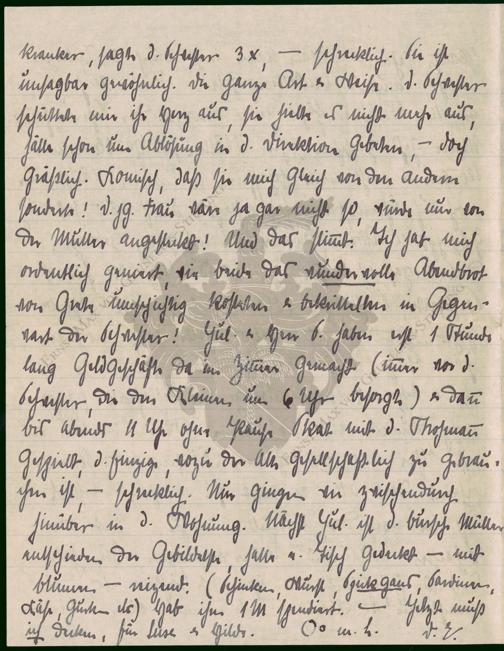 kranker, sagte d. Schwester 3 x, — schrecklich. Sie ist
unsagbar gewöhnlich. Die ganze Art & Weise. D. Schwester
schüttete mir ihr Herz aus, sie hielte es nicht mehr aus,
hätte schon um Ablösung in d. Direktion gebeten, — doch
gräßlich. Komisch, daß sie mich gleich von den Andern
sonderte! D. jg. Frau wäre ja gar nicht so, würde nur von
der Mutter angesteckt! Und das stimmt. Ich hab mich
ordentlich geniert, wie beide das wundervolle Abendbrot
von Grete umschichtig kosteten & bekrittelten in Gegen-
wart der Schwester! Jul. & Herr B. haben erst 1 Stunde
lang Geldgeschäfte da im Zimmer gemacht (immer vor d.
Schwester, die den Kleinen um 6 Uhr besorgte) & dann
bis abends 11 Uhr ohne Pause Skat mit d. Thormann
gespielt, d. Einzige wozu der Alte gesellschaftlich zu gebrau-
chen ist, — schrecklich. Nur gingen wir zwischendurch
hinüber in d. Wohnung. Nächst Jul. ist d. Mutter
entschieden der Gebildetste, hatte d. Tisch gedeckt — mit
Blumen — reizend. (Schinken, Wurst, Spickgans, Sardinen,
Käse, Gurken etc) Hab ihm 1 M spendiert. — Jetzt muß
ich decken, für Luse & Hilde.